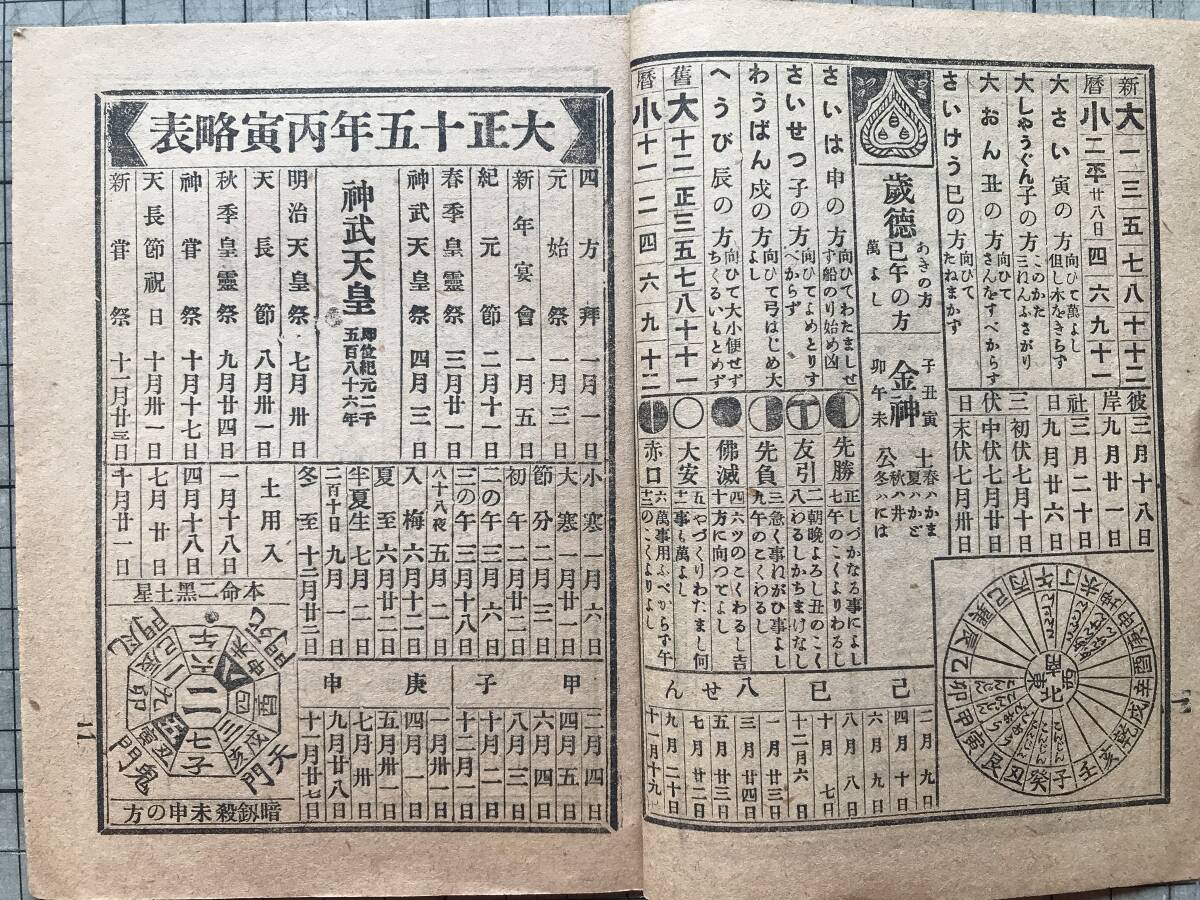 新暦
大 一三五七八十十二
小 二平廿八日四六九十一
大さい寅の方 向ひて萬よし但し木をきらず
大しやうぐん子の方 このかた三ねんふさがり
大おん丑の方 向ひてさんをすべからず
さいけう巳の方 向ひてたねまかず
歲德
あきの方
巳午の方
萬よし
金神
子丑寅
卯午未
土公
春ハかま
夏ハかど
秋ハ井
冬ハには
さいは申の方 向ひてわたましせず船のり始め凶
さいせつ子の方 向ひてよめとりすべからず
わうばん戌の方 向ひて弓はじめ大よし
へうび辰の方 向ひて大小便せずちくるいもとめず
舊暦
大 十二正三五七八十十一
小 十一二四六九十二
彼岸
三月十八日
九月廿一日
社日
三月二十日
九月廿六日
三伏日
初伏七月十日
中伏七月廿日
末伏七月卅日
先勝 正七 しづかなる事によし午のこくよりわるし
友引 二八 朝晩よろし丑のこくわるしかちまけなし
先負 三九 急く事れがひ事よし午のこくわるし
佛滅 四十 六ツのこくわるし吉方に向つてよし
大安 五十一 やづくりわたまし何事も萬よし
赤口 六十二 萬事用ふべからず午のこくよりよし
己巳
二月九日
四月十日
六月九日
八月八日
十月七日
十二月六日
八せん
一月廿三日
三月廿四日
五月廿三日
七月廿二日
九月二十日
十一月十九日
南
西
北
東
子 癸 丑 艮 寅 甲 卯 乙 辰 巽 巳 丙 午 丁 未 坤 申 庚 酉 辛 戌 乾 亥 壬
大正十五年丙寅略表
四方拜 一月一日
元始祭 一月三日
新年宴會 一月五日
紀元節 二月十一日
春季皇靈祭 三月廿一日
神武天皇祭 四月三日
神武天皇 即位紀元二千五百八十六年
明治天皇祭 七月卅日
天長節 八月卅一日
秋季皇靈祭 九月廿四日
神甞祭 十月十七日
天長節祝日 十月卅一日
新甞祭 十一月廿三日
小寒 一月六日
大寒 一月廿一日
節分 二月三日
初午 二月二日
二の午 三月六日
三の午 三月十八日
八十八夜 五月二日
入梅 六月十二日
夏至 六月廿二日
半夏生 七月二日
二百十日 九月一日
冬至 十二月廿二日
土用入
一月十八日
四月十八日
七月廿日
十月廿一日
甲子
二月四日
四月五日
六月四日
八月三日
十月二日
十二月一日
庚申
一月卅一日
四月一日
五月卅一日
七月卅日
九月廿八日
十一月廿七日
本命二黑土星
二
六
八
四
三
七
五
九
一
午
未申
酉
戌亥
子
丑寅
卯
辰巳
門死
天門
鬼門
暗劔殺未申の方